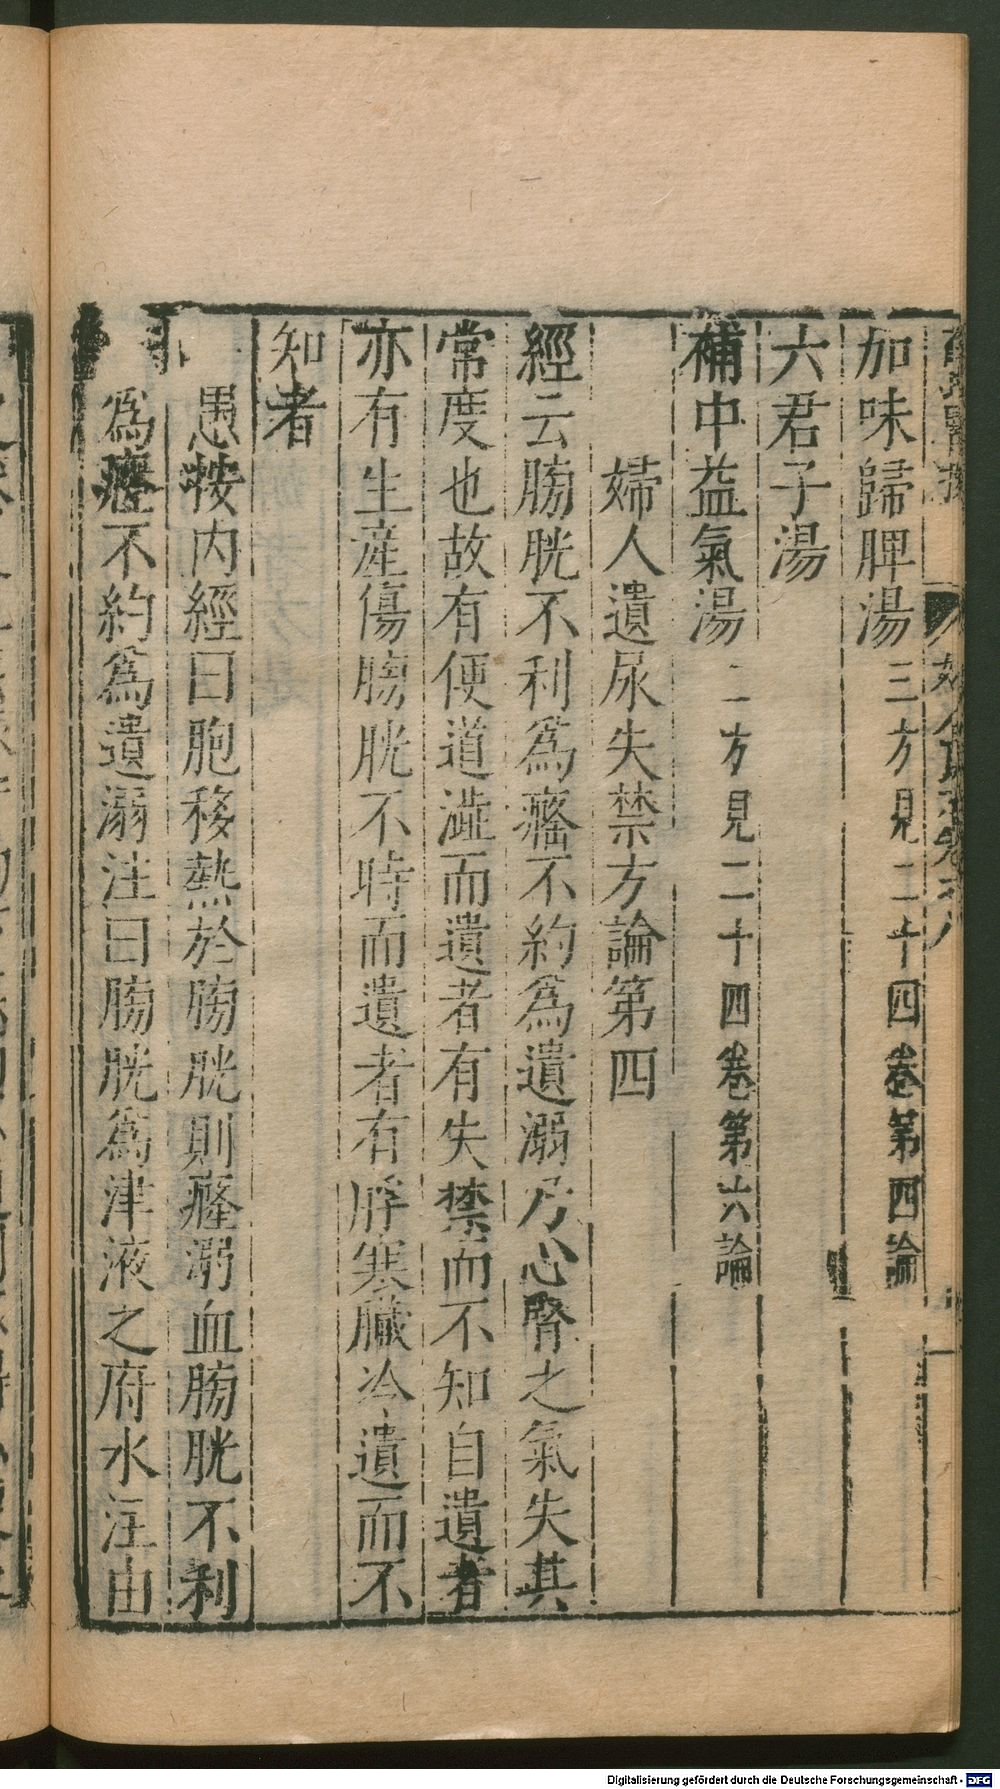 加味歸脾湯三方見二十四卷第四論
六君子湯
補中益氣湯二方見二十四卷第六論
婦人遺尿失禁方論第四
經云膀胱不利爲癃不約爲遺溺乃心腎之氣失其
常度也故有便道澁而遺者有失禁而不知自遺者
亦有生產傷膀胱不時而遺者有脬寒臟冷遺而不
知者
愚按内經曰胞移熱於膀胱則癃溺血膀胱不利
爲癃不約爲遺溺注曰膀胱爲津液之府水注由
Digitalisierung gefördert durch die Deutsche Forschungsgemeinschaft - DFG